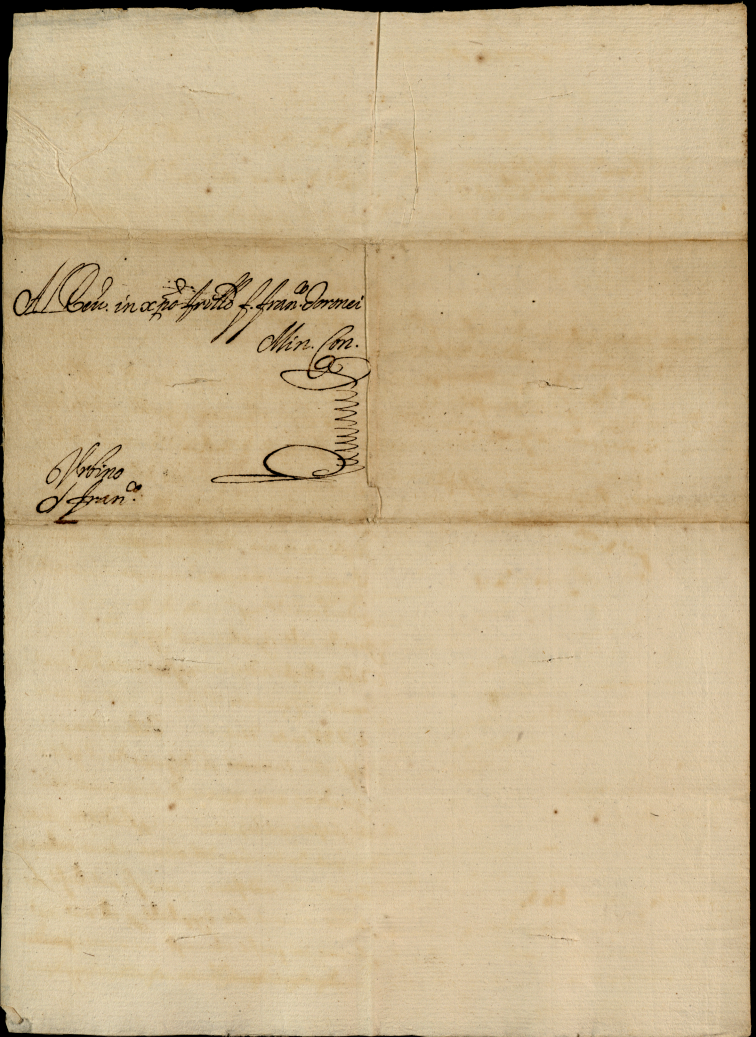 Al Reu. in xpo frello f. fran.co
Min. Con.
Vrbino
S fran.co